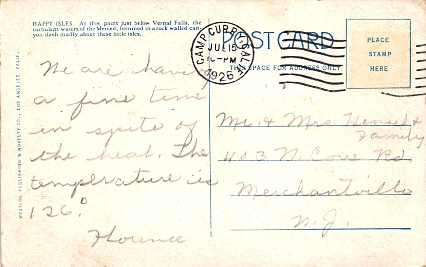 HAPPY ISLES. At this point just below Vernal Falls, the
turbulent waters of the Merced, hemmed in a rock walled can-
yon dash madly about these little isles.
POSTCARD
THIS SPACE FOR ADDRESS ONLY
CAMP CURRY, CALIF
JUL 15
-PM
1926
PLACE
STAMP
HERE
We are having
a fine time
in spite of
the heat. The
temperature is
126°
Florence
Mr. & Mrs
Family
403 N. Rd
Merchantville
N.J.
PUBLISHING & NOVELTY CO., LOS ANGELES, CALIF.